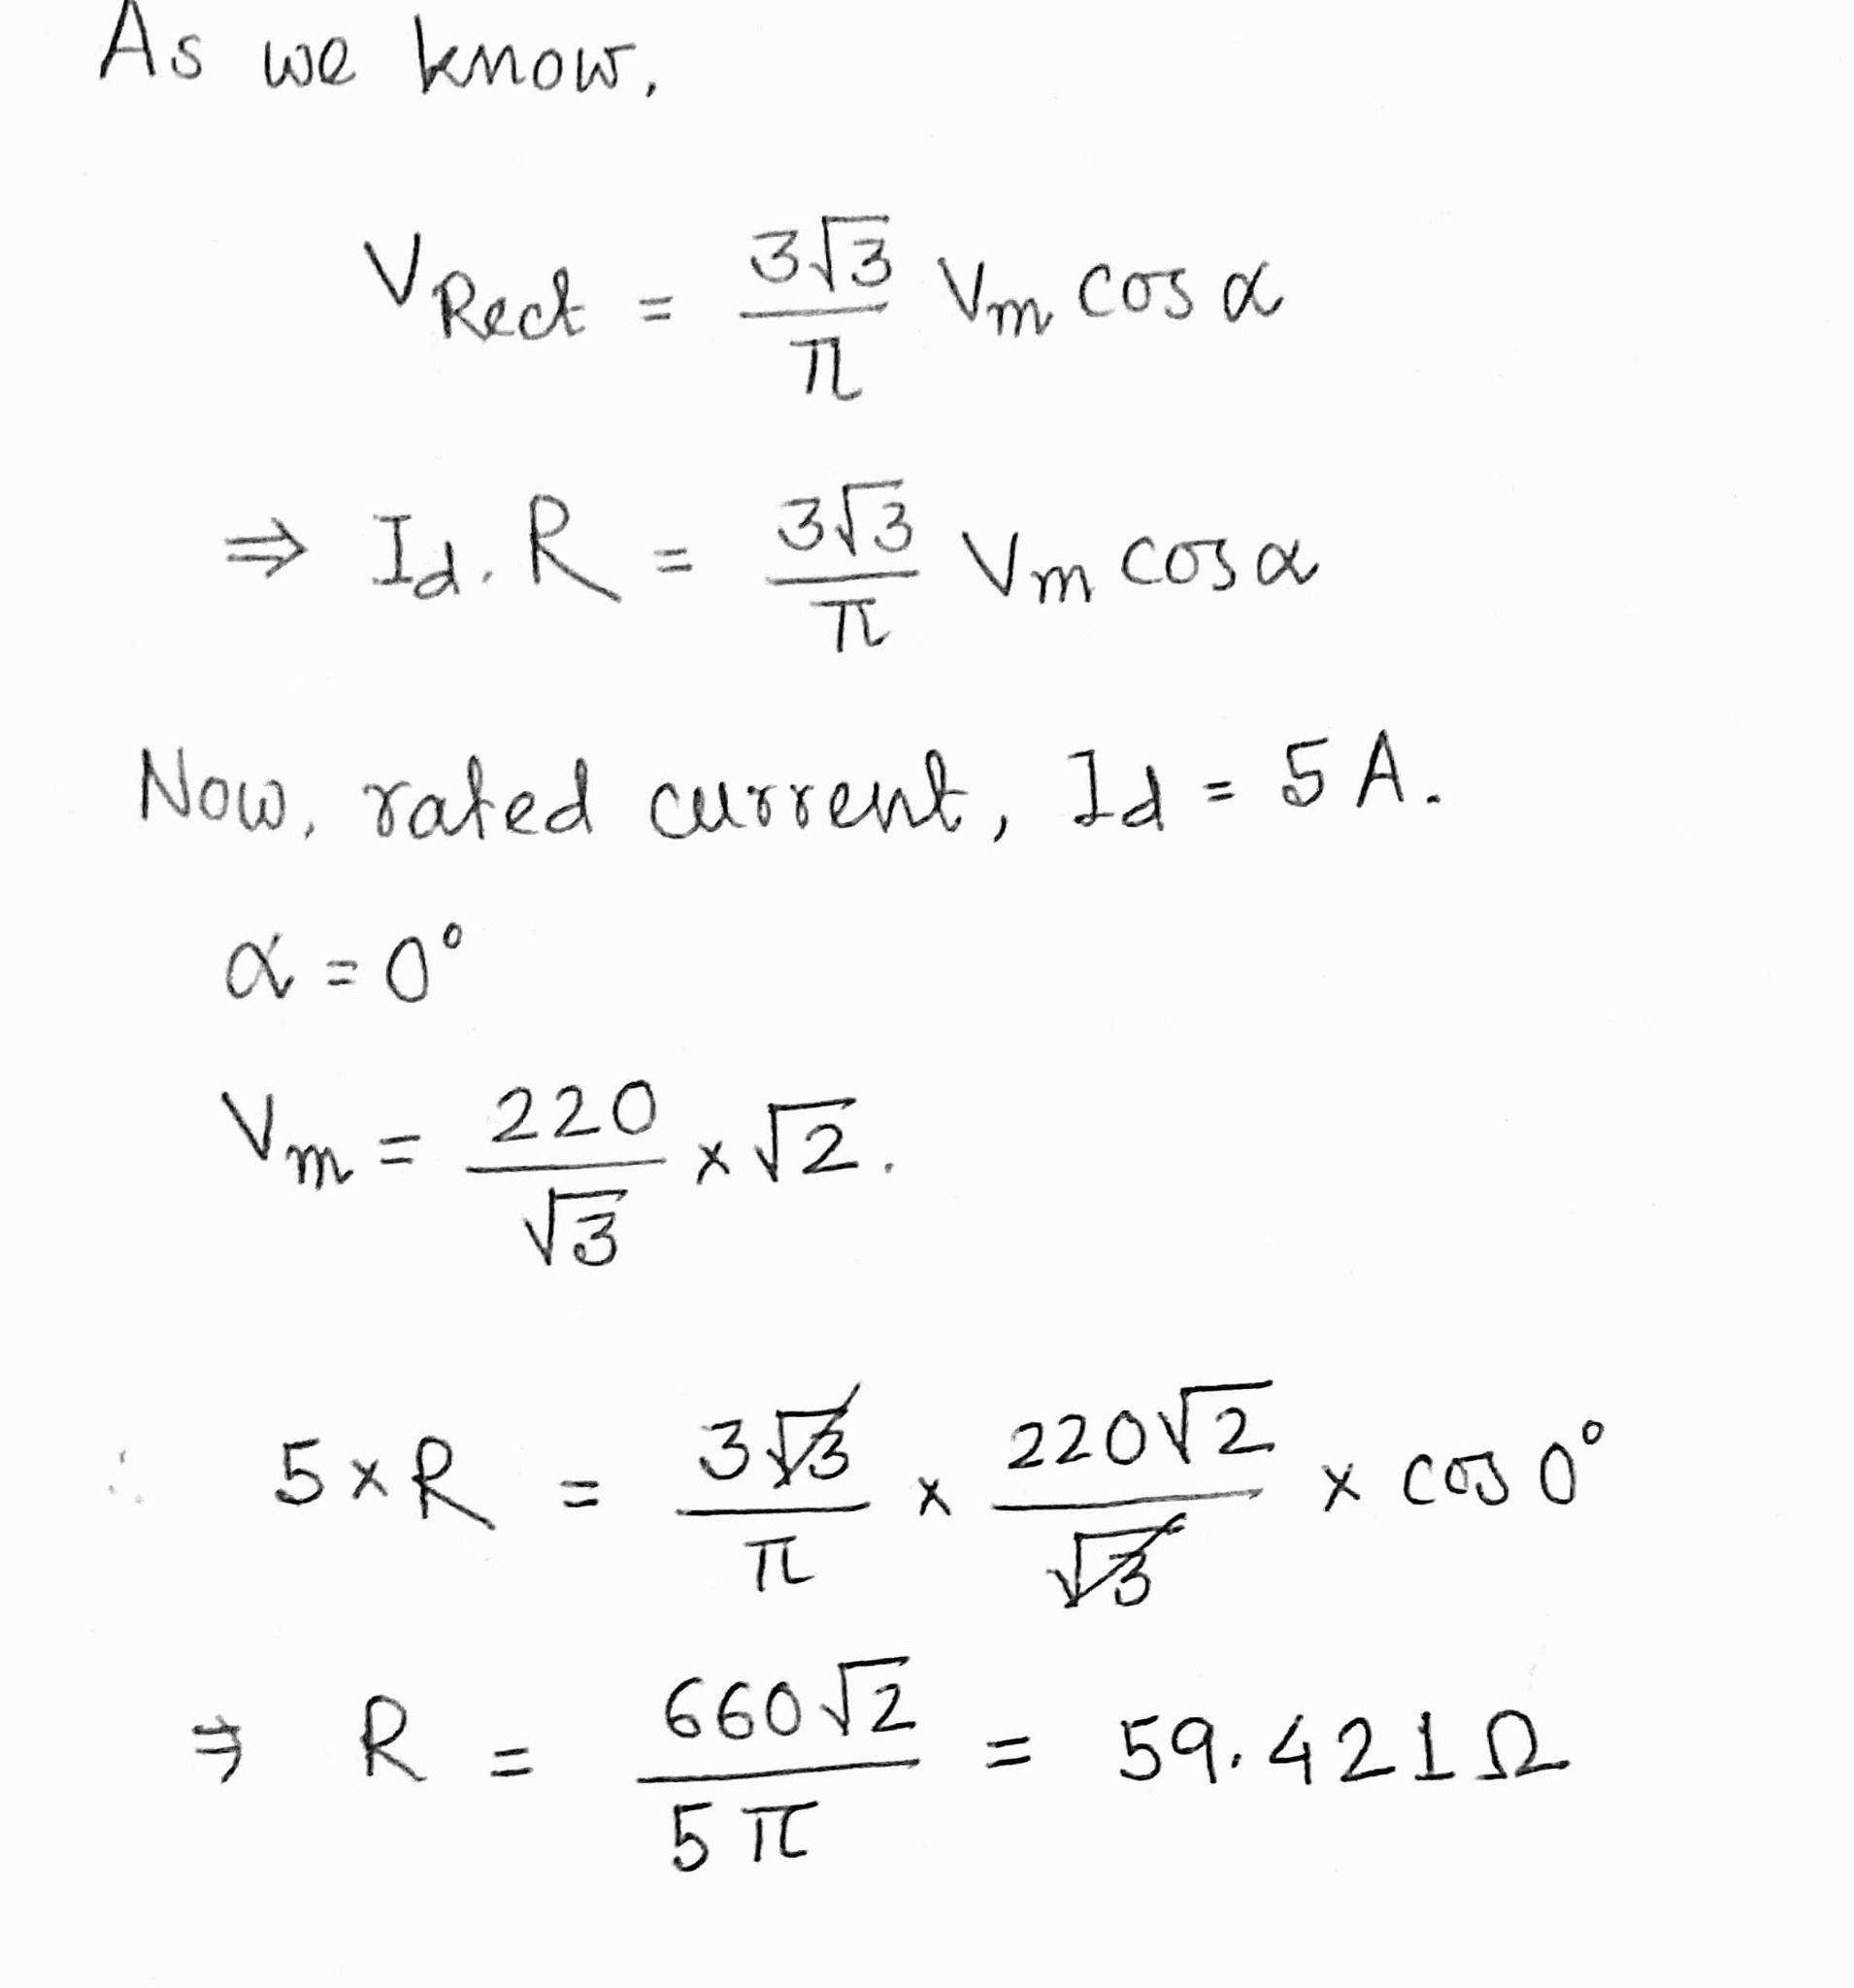 As we know,
V_Rect = 3√3/π V_m cos α
⇒ I_d. R = 3√3/π V_m cos α
Now, rated current, I_d = 5 A.
α = 0°
V_m = 220/√3 × √2.
∴ 5 × R = 3√3/π × 220√2/√3 × cos 0°
⇒ R = 660√2/5π = 59.421 Ω